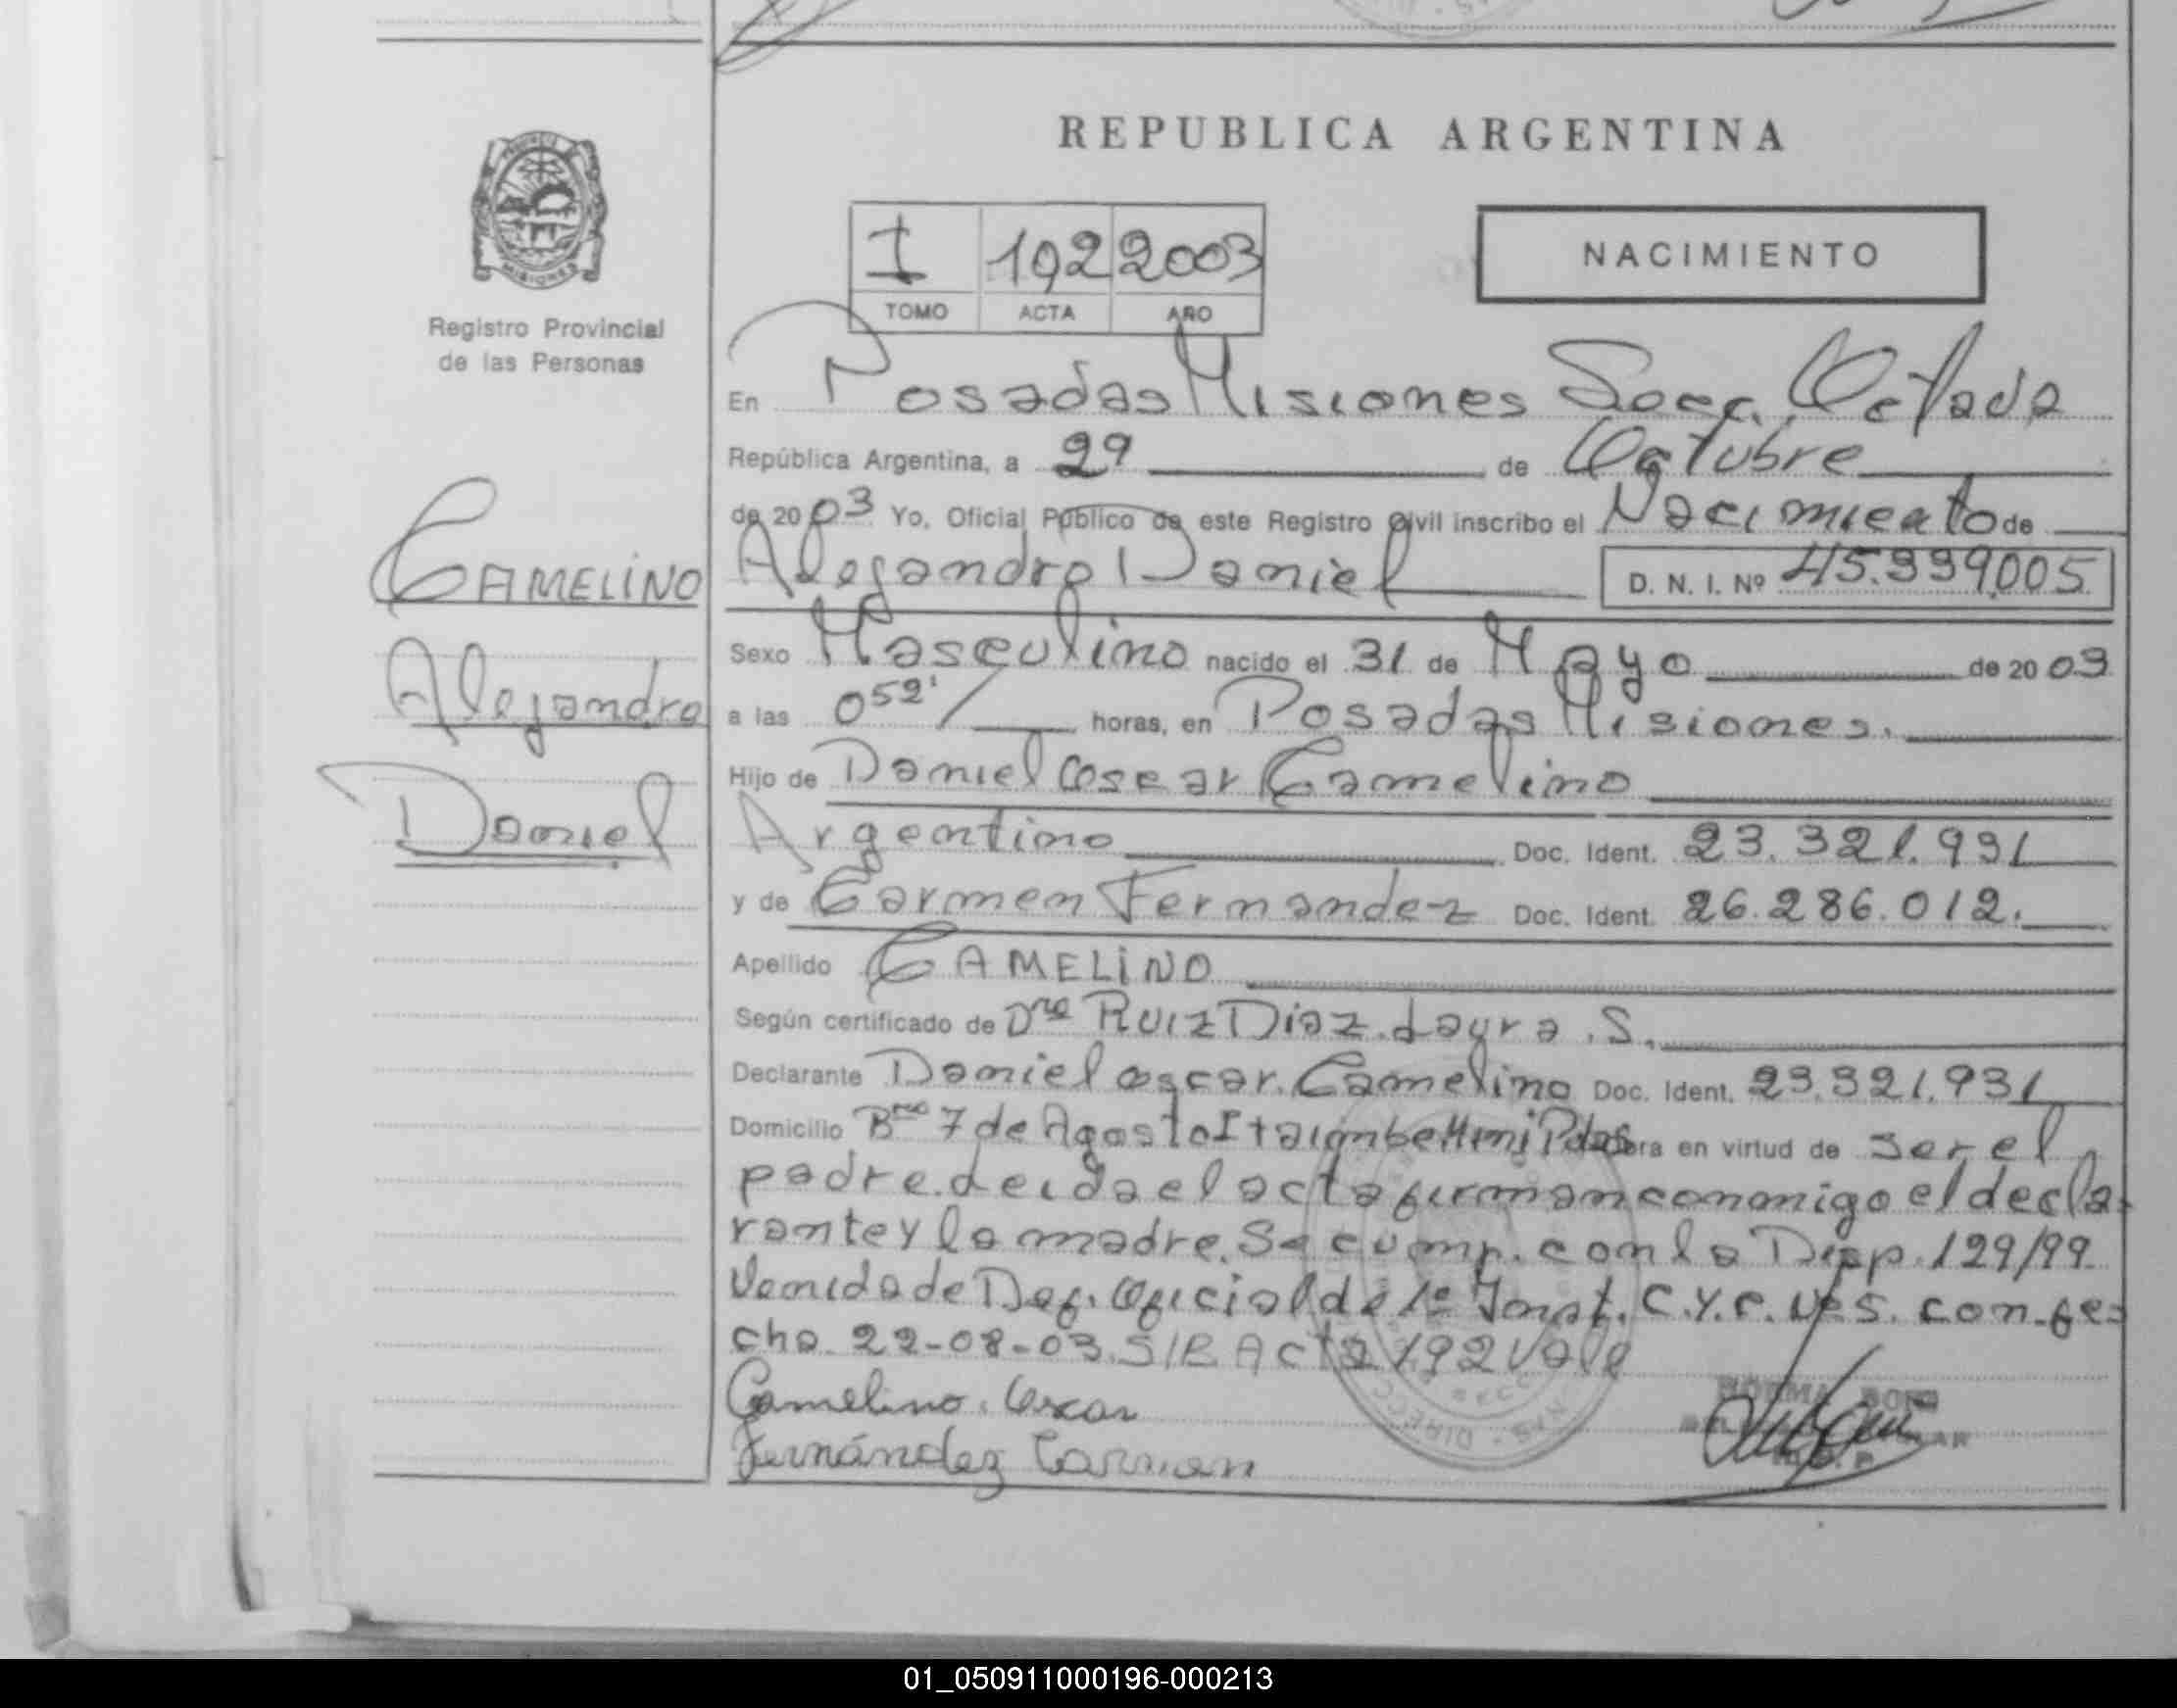 REPUBLICA ARGENTINA
I 192 2003
TOMO ACTA AÑO
NACIMIENTO
Registro Provincial
de las Personas
CAMELINO
Alejandro
Daniel
En Posadas Misiones Secc. Octava
República Argentina, a 29 de Octubre
de 2003 Yo, Oficial Público de este Registro Civil inscribo el Nacimiento de
Alejandro Daniel D. N. I. Nº 45.339.005
Sexo Masculino nacido el 31 de Mayo de 2003
a las 052' horas, en Posadas Misiones.
Hijo de Daniel Oscar Camelino
Argentino Doc. Ident. 23.321.931
y de Carmen Fernandez Doc. Ident. 26.286.012.
Apellido CAMELINO
Según certificado de Dra Ruiz Diaz. Laura. S.
Declarante Daniel Oscar. Camelino Doc. Ident. 23.321.931
Domicilio Brro 7 de Agosto Itaimbe Mini Pdas en virtud de ser el
padre. Leida el acta firman conmigo el decla-
rante y la madre. Se cump. con la Disp. 129/99
Venida de Def. Oficial de 1º Inst. C.Y.C. con fe-
cha 22-08-03. S/R Acta 192 Vale
Camelino Oscar
Fernández Carmen
01_050911000196-000213